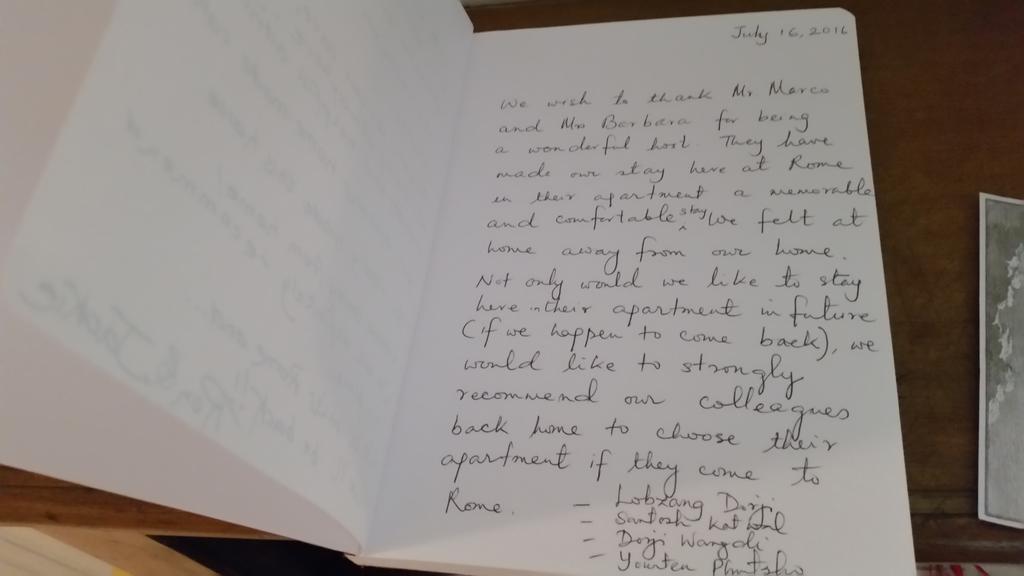 July 16, 2016
We wish to thank Mr Marco
and Mrs Barbara for being
a wonderful host. They have
made our stay here at Rome
in their apartment a memorable
and comfortable stay We felt at
home away from our home.
Not only would we like to stay
here in their apartment in future
(if we happen to come back), we
would like to strongly
recommend our colleagues
back home to choose their
apartment if they come to
Rome.
– Lobzang Dorji
– Santosh Katwal
– Dorji Wangdi
– Younten Phuntsho